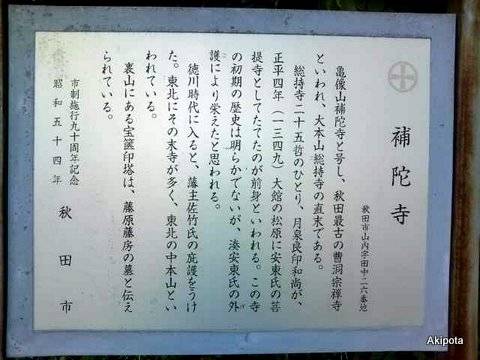 補陀寺
秋田市山内字田中二六番地
亀像山補陀寺と号し、秋田最古の曹洞宗禅寺
といわれ、大本山総持寺の直末である。
総持寺二十五哲のひとり、月泉良印和尚が、
正平四年(一三四九)大館の松原に安東氏の菩
提寺としてたてたのが前身といわれる。この寺
の初期の歴史は明らかでないが、湊安東氏の外
護により栄えたと思われる。
徳川時代に入ると、藩主佐竹氏の庇護をうけ
た。東北にその末寺が多く、東北の中本山とい
われている。
裏山にある宝篋印塔は、藤原藤房の墓と伝え
られている。
市制施行九十周年記念
昭和五十四年
秋田市
Akipota